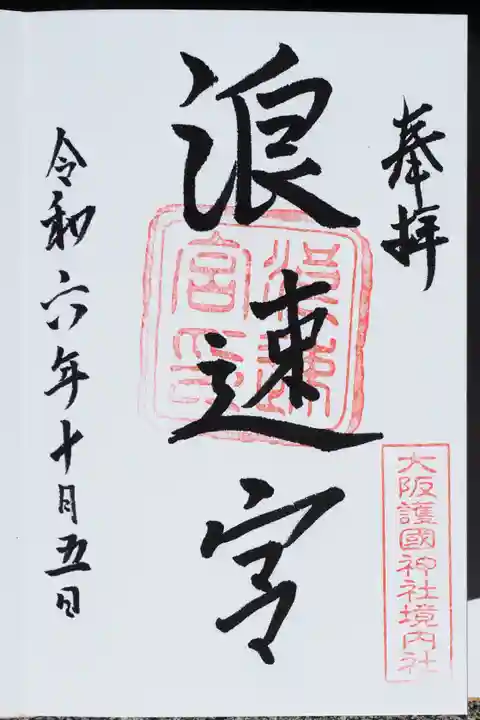 奉拝
浪速宮
浪速宮印
大阪護國神社境内社
令和六年十月五日